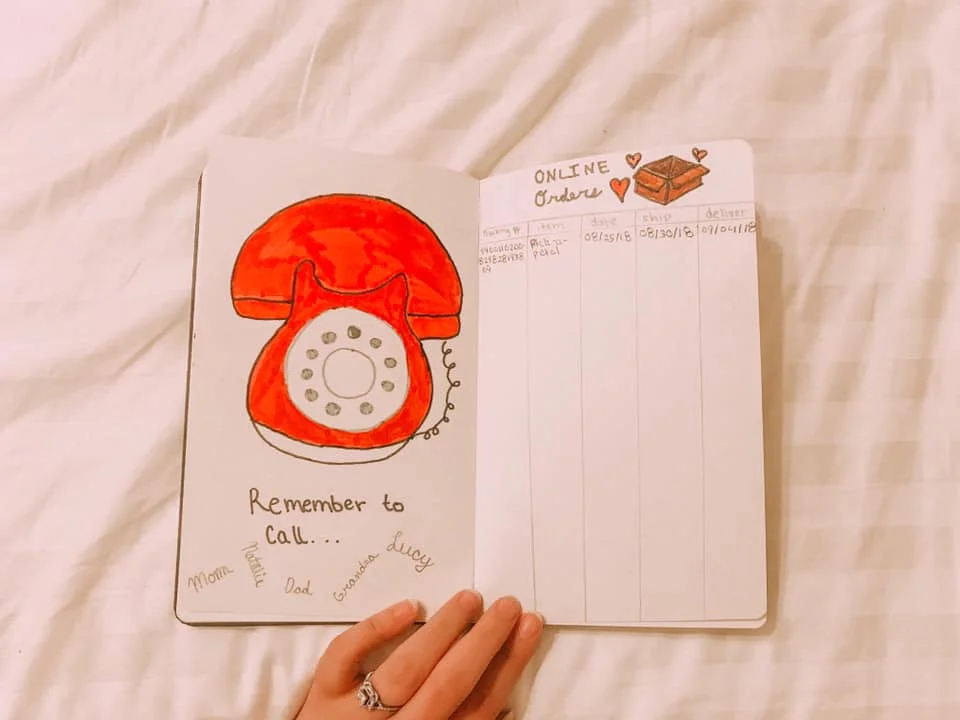 Remember to
Call...
Mom
Natalie
Dad
Grandma
Lucy
ONLINE
Orders
tracking # item date ship deliver
Pick-a- 08/25/18 08/30/18 09/04/18
petal
09